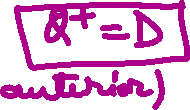 Q⁺ = D
anterior)